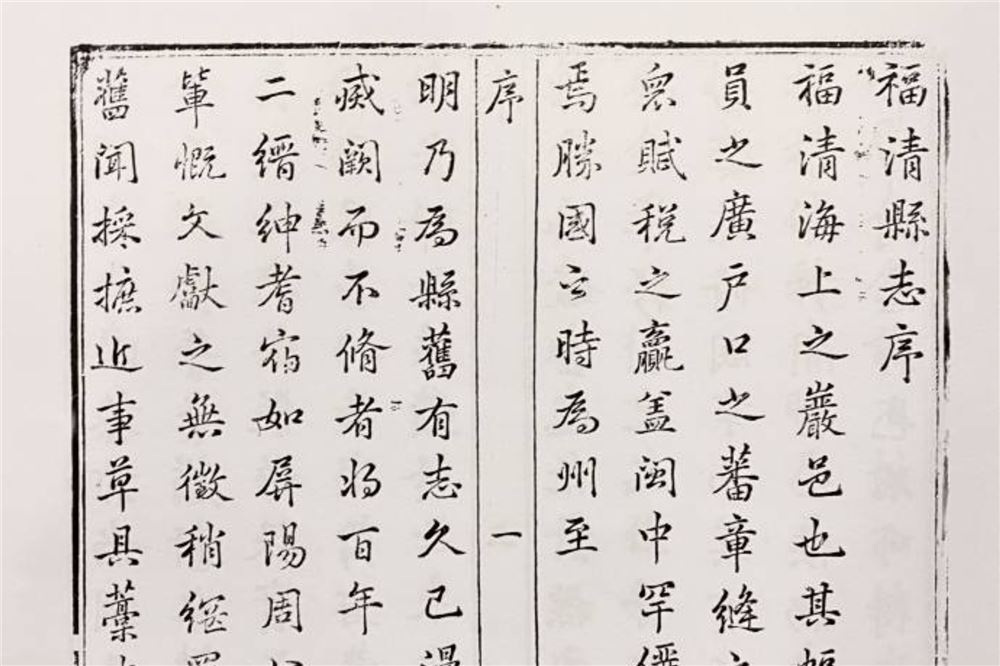 福清縣志序
福清海上之巖邑也其幅
員之廣戶口之蕃章縫之
衆賦税之贏盖閩中罕儷
焉勝國之時為州至
序
一
明乃為縣舊有志久已漫
滅闕而不脩者将百年
二縉紳耆宿如屏陽周
軰慨文獻之無徵稍綴
舊聞採摭近事草具藁